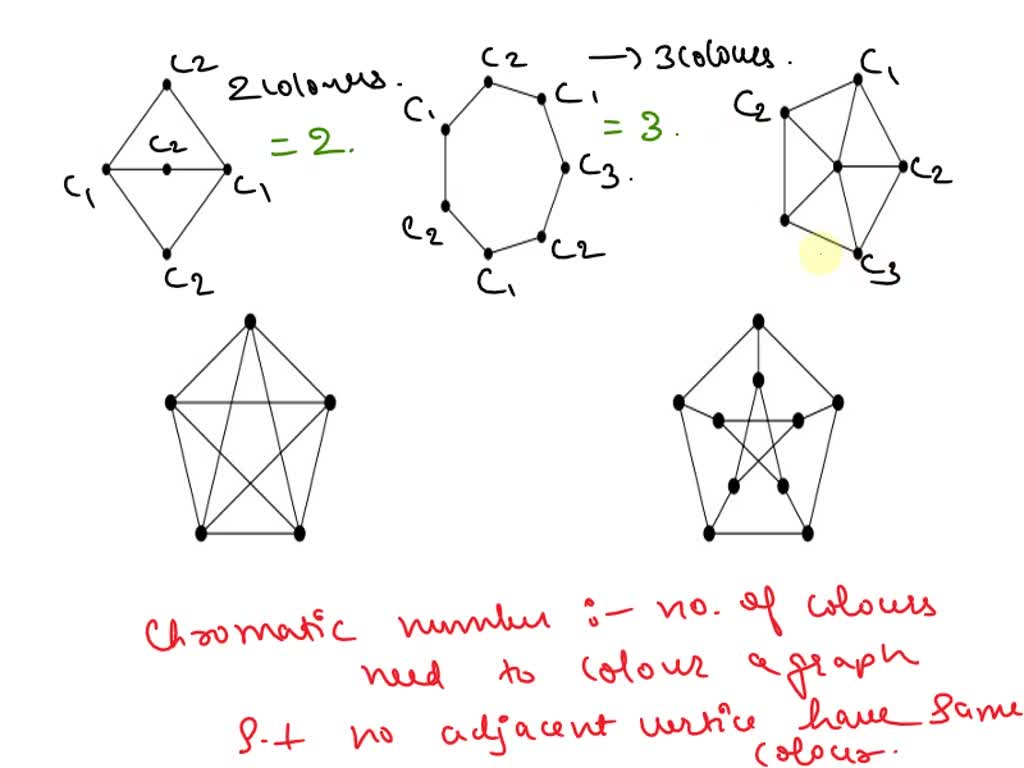 C2
2 colours.
C2
C1
C1
C2
= 2.
C2
→ 3 colours.
C1
C1
= 3.
C3.
C2
C2
C1
C1
C2
C2
C3
Chromatic number :- no. of colours
need to colour a graph
S.t no adjacent vertice have same
colour.